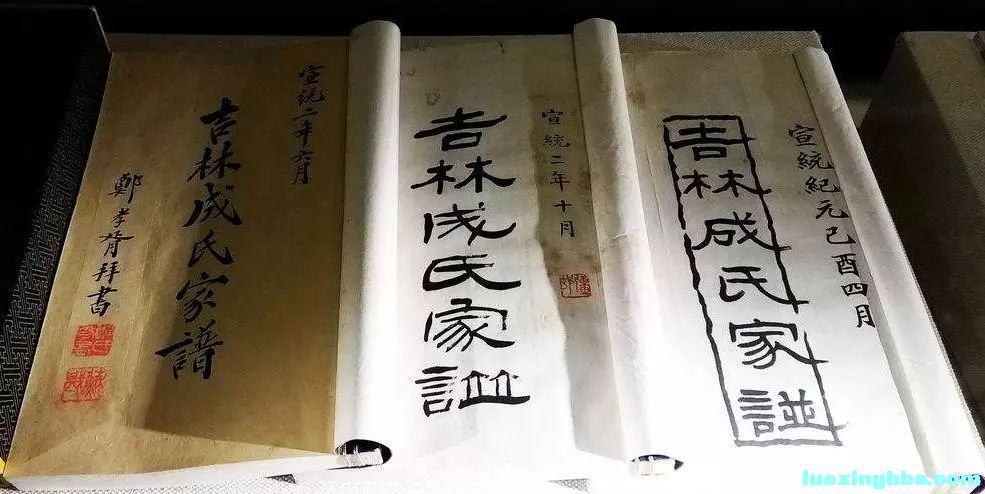 宣統紀元己酉四月
吉林成氏家諩
宣統二年十月
吉林成氏家諩
宣統二年六月
吉林成氏家譜
鄭孝胥拜書
luoxingbbs.com